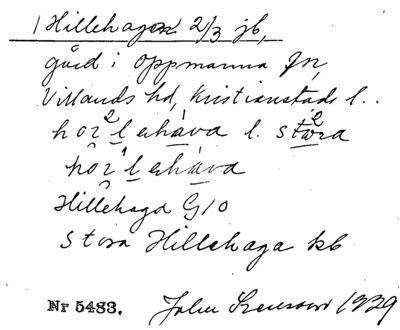 1 Hillehagen 2/3 jb,
gård i Oppmanna sn,
Villands hd, Kristianstads l..
l. stora
Hillehaga G10
Stora Hillehaga kb
Nr 5483. John Svensson 1929